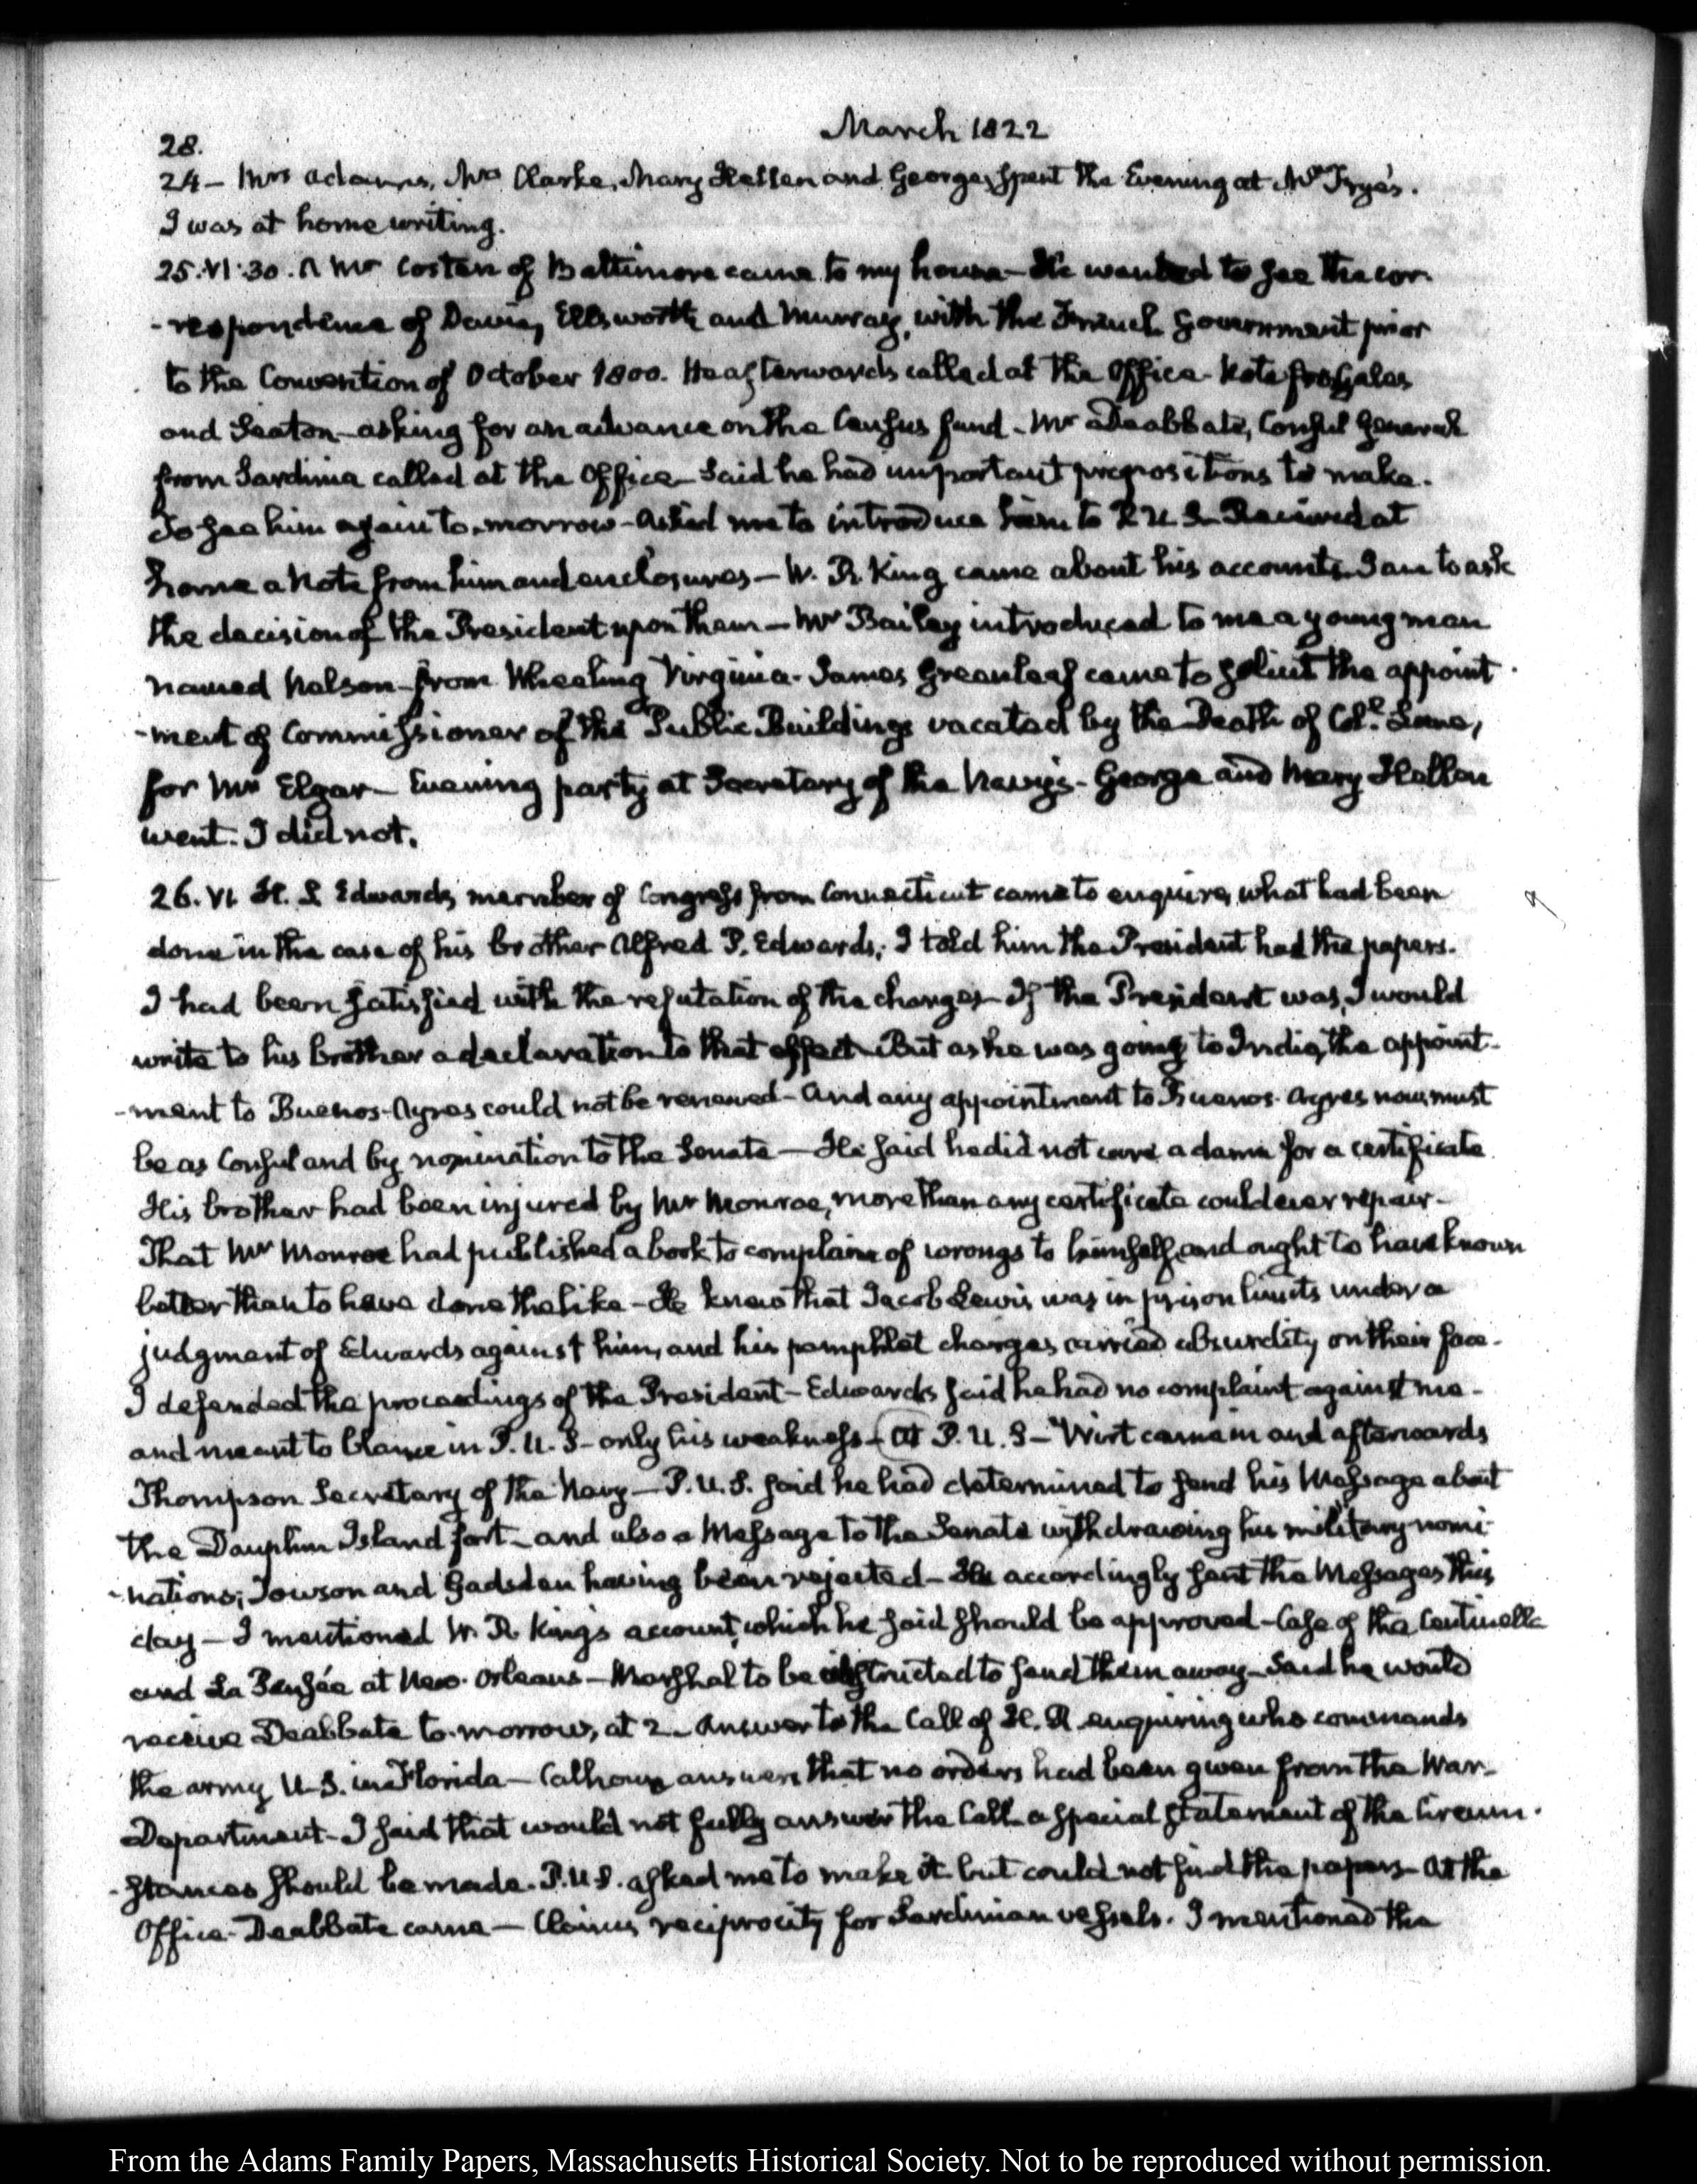 28.
March 1822
24 – Mrs. Adams, Mrs. Clarke, Mary Hellen and George, spent the Evening at Mr. Frye's.
I was at home writing.
25. VI:30. A Mr Costen of Baltimore came to my house – He wanted to see the cor-
-respondence of Davie, Ellsworth and Murray, with the French Government prior
to the Convention of October 1800. He afterwards called at the Office – Note from Gales
and Seaton – asking for an advance on the Census fund – Mr Deabbate, Consul General
from Sardinia called at the Office – Said he had important propositions to make.
To see him again to-morrow – Asked me to introduce him to P. U. S. – Received at
home a Note from him and enclosures – W. R. King came about his accounts. I am to ask
the decision of the President upon them – Mr Bailey introduced to me a young man
named Nelson – from Wheeling Virginia. James Greenleaf came to solicit the appoint-
-ment of Commissioner of the Public Buildings vacated by the Death of Coll. Lane,
for Mr Elgar – Evening party at Secretary of the Navy's – George and Mary Hellen
went. I did not.
26. VI. H. S. Edwards, member of Congress from Connecticut came to enquire, what had been
done in the case of his brother Alfred P. Edwards; I told him the President had the papers.
I had been satisfied with the refutation of the charges – If the President was, I would
write to his brother a declaration to that effect – But as he was going to India, the appoint-
-ment to Buenos-Ayres could not be renewed – And any appointment to Buenos-Ayres now, must
be as Consul and by nomination to the Senate – He said he did not care a damn for a certificate
His brother had been injured by Mr Monroe, more than any certificate could ever repair –
That Mr Monroe had published a book to complain of wrongs to himself, and ought to have known
better than to have done the like – He knew that Jacob Lewis was in prison limits under a
judgment of Edwards against him, and his pamphlet charges carried absurdity on their face –
I defended the proceedings of the President – Edwards said he had no complaint against me –
and meant to blame in P. U. S – only his weakness – At P. U. S – Wirt came in and afterwards
Thompson Secretary of the Navy – P. U. S. said he had determined to send his Message about
the Dauphin Island fort – and also a Message to the Senate withdrawing his military nomi-
-nations; Towson and Gadsden having been rejected – He accordingly sent the Messages this
day – I mentioned W. R. King's account, which he said should be approved – Case of the Centinella
and La Pensée at New-Orleans – Marshal to be instructed to send them away – Said he would
receive Deabbate to-morrow, at 2 – Answer to the Call of H. R. enquiring who commands
the army U. S. in Florida – Calhoun answers that no orders had been given from the War-
Department – I said that would not fully answer the Call – a special statement of the Circum-
-stances should be made. P. U. S. asked me to make it – but could not find the papers – At the
Office – Deabbate came – Claims reciprocity for Sardinian vessels. I mentioned the
From the Adams Family Papers, Massachusetts Historical Society. Not to be reproduced without permission.